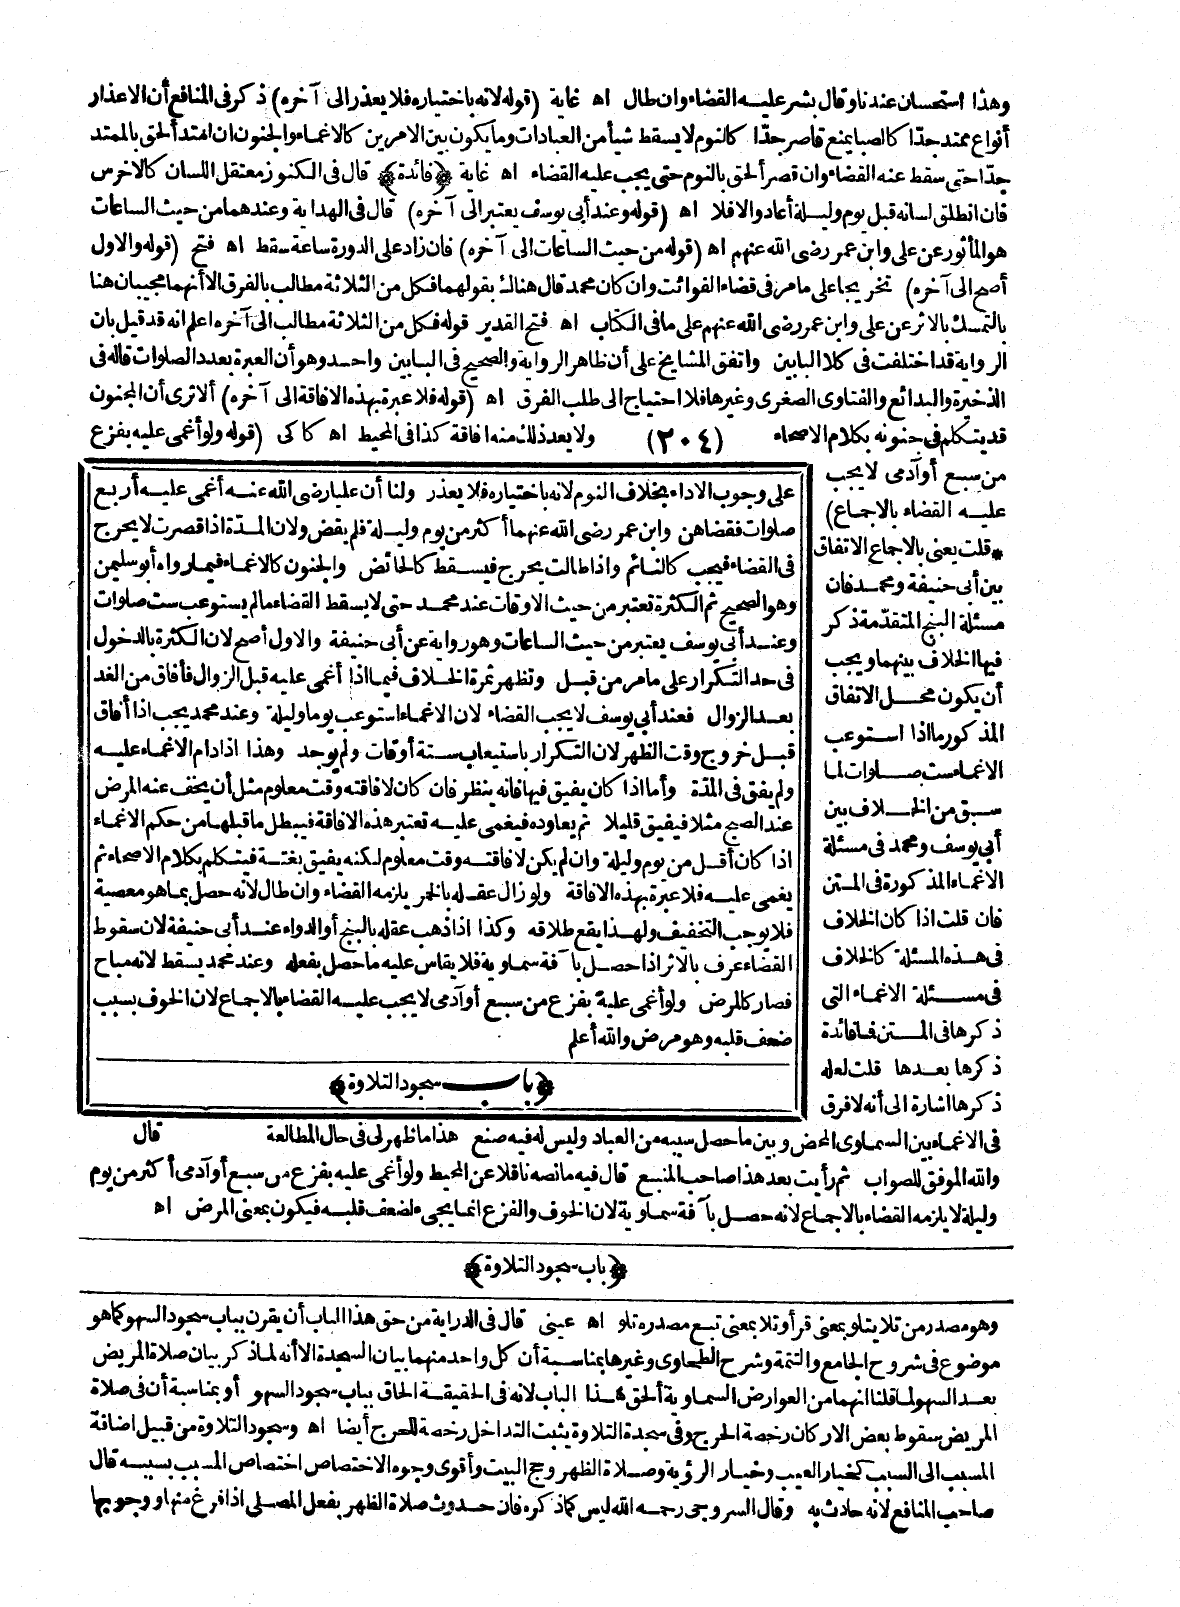 وهذا استحسان عندنا وقال بشر عليه القضاء وان طال اه غاية (قوله لانه باختياره فلا يعذر الى آخره) ذكر فى المنافع أن الاعذار
أنواع ممتد جدّا كالصبا يمنع قاصر جدّا كالنوم لا يسقط شيأ من العبادات وما يكون بين الامرين كالاغماء والجنون ان امتد ألحق بالممتد
جدّا حتى سقط عنه القضاء وان قصر ألحق بالنوم حتى يجب عليه القضاء اه غاية ﴿فائدة﴾ قال فى الكنوز معتقل اللسان كالاخرس
فان انطلق لسانه قبل يوم وليلة أعاد والا فلا اه (قوله وعند أبي يوسف يعتبر الى آخره) قال فى الهداية وعندهما من حيث الساعات
هو المأثور عن على وابن عمر رضى الله عنهم اه (قوله من حيث الساعات الى آخره) فان زاد على الدورة ساعة سقط اه فتح (قوله والاول
أصح الى آخره) تخريجا على ما مر فى قضاء الفوائت وان كان محمد قال هنالك بقولهما فكل من الثلاثة مطالب بالفرق الا أنهما يجيبان هنا
بالتمسك بالاثر عن على وابن عمر رضى الله عنهم على ما فى الكتاب اه فتح القدير قوله فكل من الثلاثة مطالب الى آخره اعلم انه قد قيل بان
الرواية قد اختلفت فى كلا البابين واتفق المشايخ على أن ظاهر الرواية والصحيح فى البابين واحد وهو أن العبرة بعدد الصلوات قاله فى
الذخيرة والبدائع والفتاوى الصغرى وغيرها فلا احتياج الى طلب الفرق اه (قوله فلا عبرة بهذه الافاقة الى آخره) ألا ترى أن المجنون
قد يتكلم فى جنونه بكلام الاصحاء (٢٠٤) ولا يعد ذلك منه افاقة كذا فى المحيط اه كاكى (قوله ولو أغمى عليه بفزع
من سبع أو آدمى لا يجب
عليه القضاء بالاجماع)
* قلت يعنى بالاجماع الاتفاق
بين أبى حنيفة ومحمد فان
مسئلة البنج المتقدّمة ذكر
فيها الخلاف بينهما ويجب
أن يكون محل الاتفاق
المذكور ما اذا استوعب
الاغماء ست صلوات لما
سبق من الخلاف بين
أبى يوسف ومحمد فى مسئلة
الاغماء المذكورة فى المتن
فان قلت اذا كان الخلاف
فى هذه المسئلة كالخلاف
فى مسئلة الاغماء التى
ذكرها فى المتن فما فائدة
ذكرها بعدها قلت لعله
ذكرها اشارة الى أنه لا فرق
على وجوب الاداء بخلاف النوم لانه باختياره فلا يعذر ولنا أن عليا رضى الله عنه أغمى عليه أربع
صلوات فقضاهن وابن عمر رضى الله عنهما أكثر من يوم وليلة فلم يقض ولان المدّة اذا قصرت لا يحرج
فى القضاء فيجب كالنائم واذا طالت يحرج فيسقط كالحائض والجنون كالاغماء فيما رواه أبو سليمن
وهو الصحيح ثم الكثرة تعتبر من حيث الاوقات عند محمد حتى لا يسقط القضاء مالم يستوعب ست صلوات
وعند أبى يوسف يعتبر من حيث الساعات وهو رواية عن أبى حنيفة والاول أصح لان الكثرة بالدخول
فى حد التكرار على ما مر من قبل وتظهر ثمرة الخلاف فيما اذا أغمى عليه قبل الزوال فأفاق من الغد
بعد الزوال فعند أبى يوسف لا يجب القضاء لان الاغماء استوعب يوما وليلة وعند محمد يجب اذا أفاق
قبل خروج وقت الظهر لان التكرار باستيعاب ستة أوقات ولم يوجد وهذا اذا دام الاغماء عليه
ولم يفق فى المدّة وأما اذا كان يفيق فيها فانه ينظر فان كان لافاقته وقت معلوم مثل أن يخف عنه المرض
عند الصبح مثلا فيفيق قليلا ثم يعاوده فيغمى عليه تعتبر هذه الافاقة فيبطل ما قبلها من حكم الاغماء
اذا كان أقل من يوم وليلة وان لم يكن لافاقته وقت معلوم لكنه يفيق بغتة فيتكلم بكلام الاصحاء ثم
يغمى عليه فلا عبرة بهذه الافاقة ولو زال عقله بالخمر يلزمه القضاء وان طال لانه حصل بما هو معصية
فلا يوجب التخفيف ولهذا يقع طلاقه وكذا اذا ذهب عقله بالبنج أو الدواء عند أبى حنيفة لان سقوط
القضاء عرف بالاثر اذا حصل بآفة سماوية فلا يقاس عليه ما حصل بفعله وعند محمد يسقط لانه مباح
فصار كالمرض ولو أغمى عليه بفزع من سبع أو آدمى لا يجب عليه القضاء بالاجماع لان الخوف بسبب
ضعف قلبه وهو مرض والله أعلم
﴿باب سجود التلاوة﴾
فى الاغماء بين السماوى المحض وبين ما حصل سببه من العباد وليس له فيه صنع هذا ما ظهر لى فى حال المطالعة قال
والله الموفق للصواب ثم رأيت بعد هذا صاحب المنبع قال فيه ما نصه ناقلا عن المحيط ولو أغمى عليه بفزع من سبع أو آدمى أكثر من يوم
وليلة لا يلزمه القضاء بالاجماع لانه حصل بآفة سماوية لان الخوف والفزع انما يجىء لضعف قلبه فيكون بمعنى المرض اه
﴿باب سجود التلاوة﴾
وهو مصدر من تلا يتلو بمعنى قرأ وتلا بمعنى تبع مصدره تلو اه عينى قال فى الدراية من حق هذا الباب أن يقرن بباب سجود السهو كما هو
موضوع فى شروح الجامع والتتمة وشرح الطحاوى وغيرها بمناسبة أن كل واحد منهما بيان السجدة الا أنه لما ذكر بيان صلاة المريض
بعد السهو لما قلنا انهما من العوارض السماوية ألحق هذا الباب لانه فى الحقيقة الحاق بباب سجود السهو أو بمناسبة أن فى صلاة
المريض سقوط بعض الاركان رخصة الحرج وفى سجدة التلاوة يثبت التداخل رخصة للحرج أيضا اه وسجود التلاوة من قبيل اضافة
المسبب الى السبب كخيار العيب وخيار الرؤية وصلاة الظهر وحج البيت وأقوى وجوه الاختصاص اختصاص المسبب بسببه قال
صاحب المنافع لانه حادث به وقال السروجى رحمه الله ليس كما ذكره فان حدوث صلاة الظهر بفعل المصلى اذا فرغ منها و وجوبها